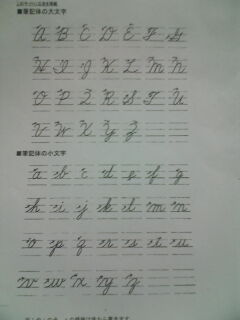 ■筆記体の大文字
A B C D E F G
H I J K L M N
O P Q R S T U
V W X Y Z
■筆記体の小文字
a b c d e f g
h i j k l m n
o p q r s t u
v w x y z